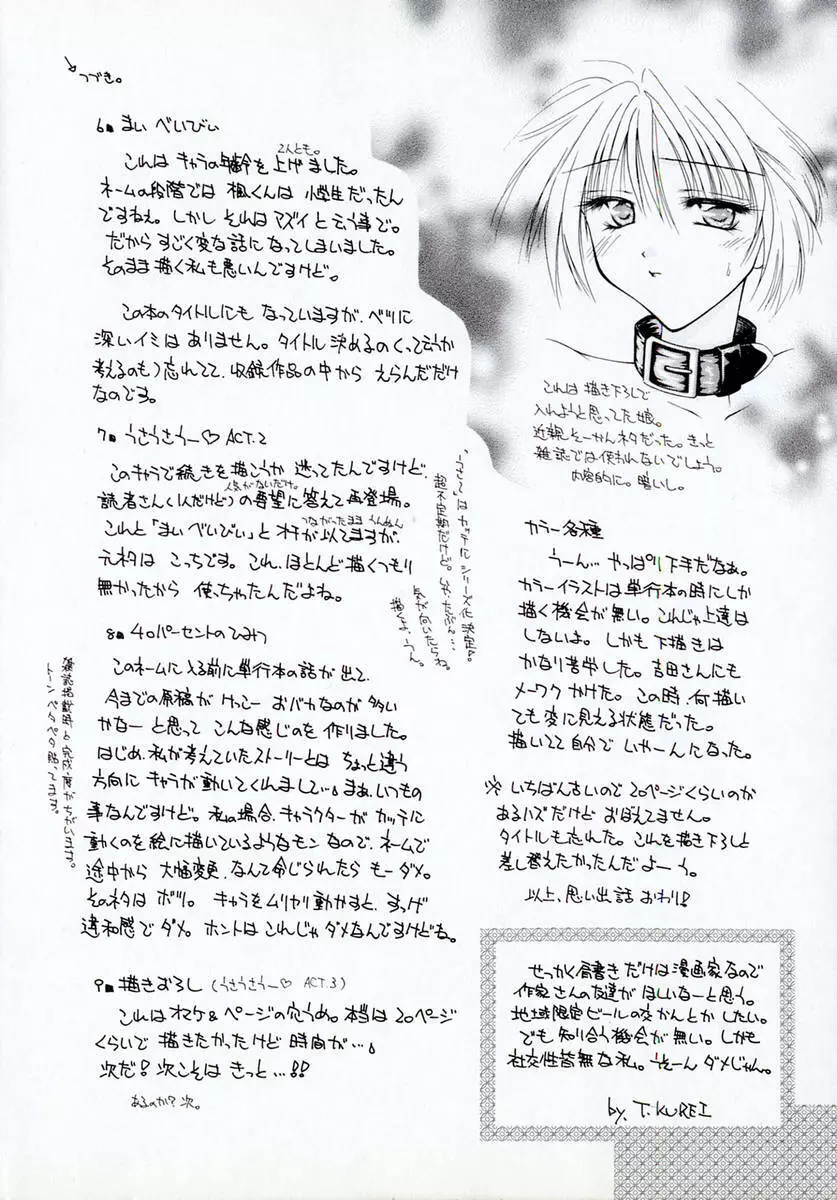 つづき。
6■ まい べいびぃ
2人とも。
これは キャラの年齢を 上げました。
ネームの段階では 楓くんは 小学生だったん
ですねぇ。しかし それは マズイ と云う事で。
だから すごく変な話に なってしまいました。
そのまま 描く私も悪いんですけど。
この本のタイトルにも なっていますが、べつに
深いイミは ありません。タイトル 決めるの(って云うか
考えるのも)忘れてて、収録作品の中から えらんだだけ
なのです。
7■ うさうさうー♡ ACT.2
このキャラで続きを描こうか 迷ってたんですけど、
人気がないだけ。
読者さん(1人だけど)の要望に答えて 再登場。
つながったまま うんぬん
これと「まい べいびぃ」と オチが似てますが、
元ネタは こっちです。これ、ほとんど 描くつもり
無かったから 使っちゃったんだよね。
超不定期だけど。
気が向いたらね。
8■ 40パーセントのひまわり
このネームに入る前に 単行本の話が 出て、
今までの原稿が けっこー おバカなのが 多い
かなー と思って こんな感じのを 作りました。
はじめ、私が考えていたストーリーとは ちょっと違う
方向に キャラが動いてくれまして…。まぁ、いつもの
事なんですけど。私の場合、キャラクターが カッテに
動くのを 絵に描いているようなモン なので、ネームで
途中から 大幅変更、なんて命じられたら もーダメ。
そのネタは ボツ。キャラを ムリヤリ動かすと、すっげ
違和感で ダメ。ホントは これじゃ ダメなんですけどね。
雑誌掲載時と完成度がちがいます。
トーン ベタベタ 貼ってます。
9■ 描きおろし (うさうさうー♡ ACT.3)
これは オマケ&ページの穴うめ。本当は 20ページ
くらいで 描きたかったけど 時間が…。
次だ! 次こそは きっと…!!
あるのか? 次。
これは 描き下ろしで
入れようと思ってた娘。
近親そーかんネタだった。きっと
雑誌では 使われないでしょう。
内容的に。暗いし。
カラー各種
うーん… やっぱり 下手だなぁ。
カラーイラストは 単行本の時にしか
描く機会が 無い。これじゃ上達は
しないよ。しかも 下描きは
かなり苦労した。吉田さんにも
メーワク かけた。この時、何 描い
ても 変に見える 状態だった。
描いてて 自分で いやーんになった。
※ いちばん古いので 20ページくらいのが
あるハズだけど おぼえてません。
タイトルも忘れた。これを描き下ろしと
差し替えたかったんだよーう。
以上、思い出話 おわり!
せっかく肩書きだけは漫画家なので
作家さんの友達が ほしいなーと思う。
地域限定ビールの交かんとか したい。
でも 知り合う機会が 無い。しかも
社交性皆無な私。うそーん ダメじゃん。
by. T.KUREI